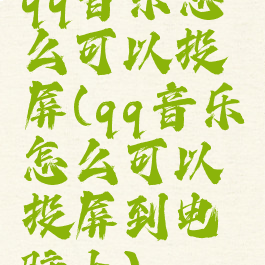 qq音乐怎
么可以投
屏(qq音乐
怎么可以
投屏到电
脑上)